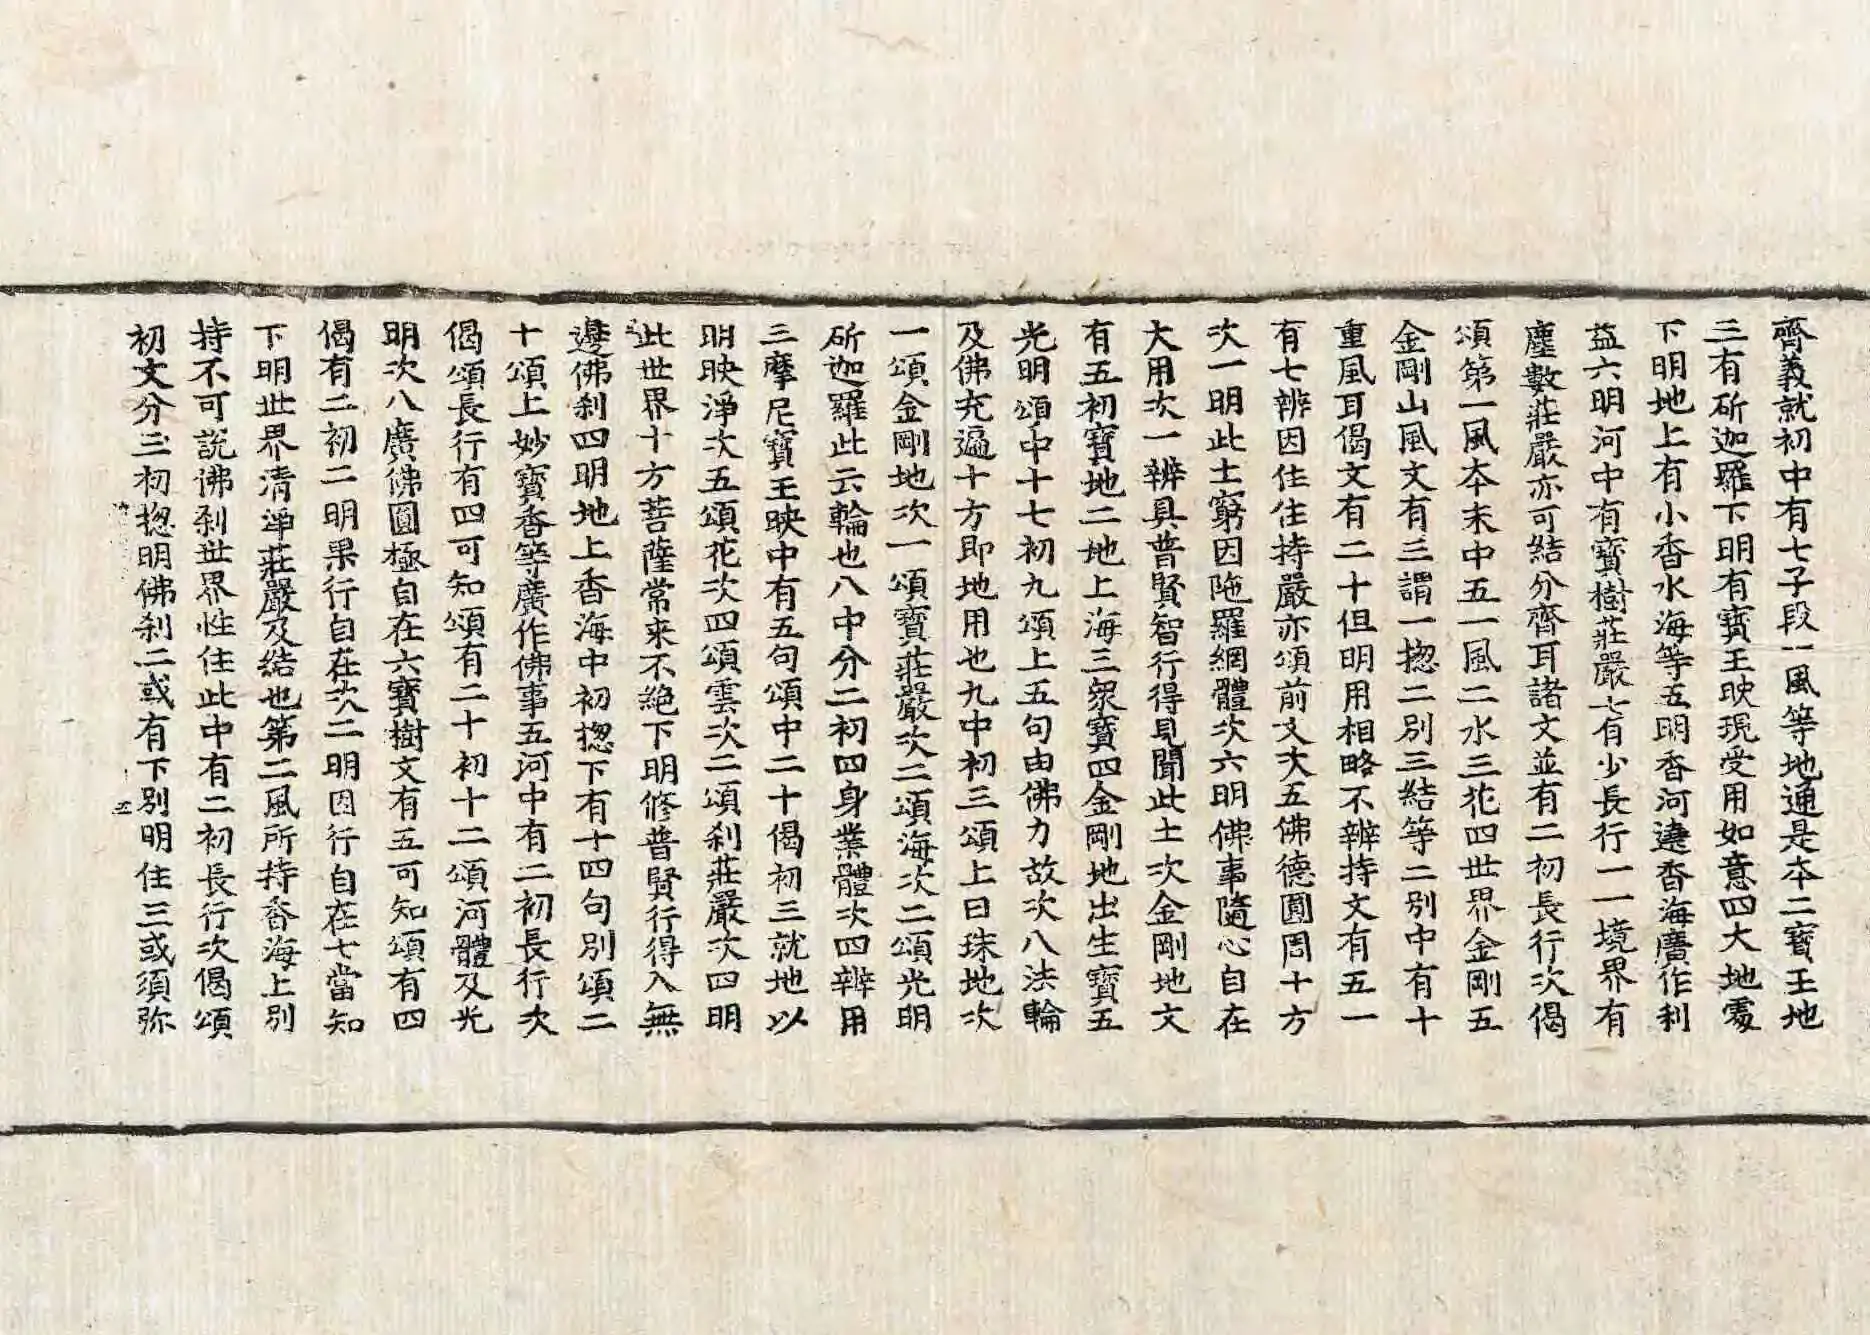 齊義就初中有七子段一風等地通是本二寶王地
三有斫迦羅下明有寶王映現受用如意四大地處
下明地上有小香水海等五明香河遶香海廣作利
益六明河中有寶樹莊嚴七有少長行一一境界有
塵數莊嚴亦可結分齊耳諸文並有二初長行次偈
頌第一風本末中五一風二水三花四世界金剛五
金剛山風文有三謂一揔二別三結等二別中有十
重風耳偈文有二十但明用相略不辨持文有五一
有七辨因住住持嚴亦頌前文次五佛德圓周十方
次一明此土窮因陁羅網體次六明佛事隨心自在
大用次一辨具普賢智行得見聞此土次金剛地文
有五初寶地二地上海三眾寶四金剛地出生寶五
光明頌中十七初九頌上五句由佛力故次八法輪
及佛充遍十方即地用也九中初三頌上日珠地次
一頌金剛地次一頌寶莊嚴次二頌海次二頌光明
斫迦羅此云輪也八中分二初四身業體次四辨用
三摩尼寶王映中有五句頌中二十偈初三就地以
明映淨次五頌花次四頌雲次二頌刹莊嚴次四明
此世界十方菩薩常來不絕下明修普賢行得入無
邊佛刹四明地上香海中初揔下有十四句別頌二
十頌上妙寶香等廣作佛事五河中有二初長行次
偈頌長行有四可知頌有二十初十二頌河體及光
明次八廣佛圓極自在六寶樹文有五可知頌有四
偈有二初二明果行自在次二明因行自在七當知
下明世界清淨莊嚴及結也第二風所持香海上別
持不可說佛刹世界性住此中有二初長行次偈頌
初文分三初揔明佛刹二或有下別明住三或須弥